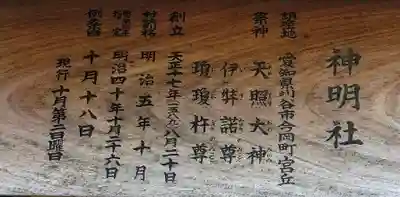 神明社
鎮座地 愛知県刈谷市今岡町宮丘
祭神 天照大神
伊弉諾尊
瓊瓊杵尊
創立 天正十七年(一五八九)八月二十日
村社列格 明治五年十月
明治四十年十月二十六日
例祭 十月十八日
現行 十月第二日曜日